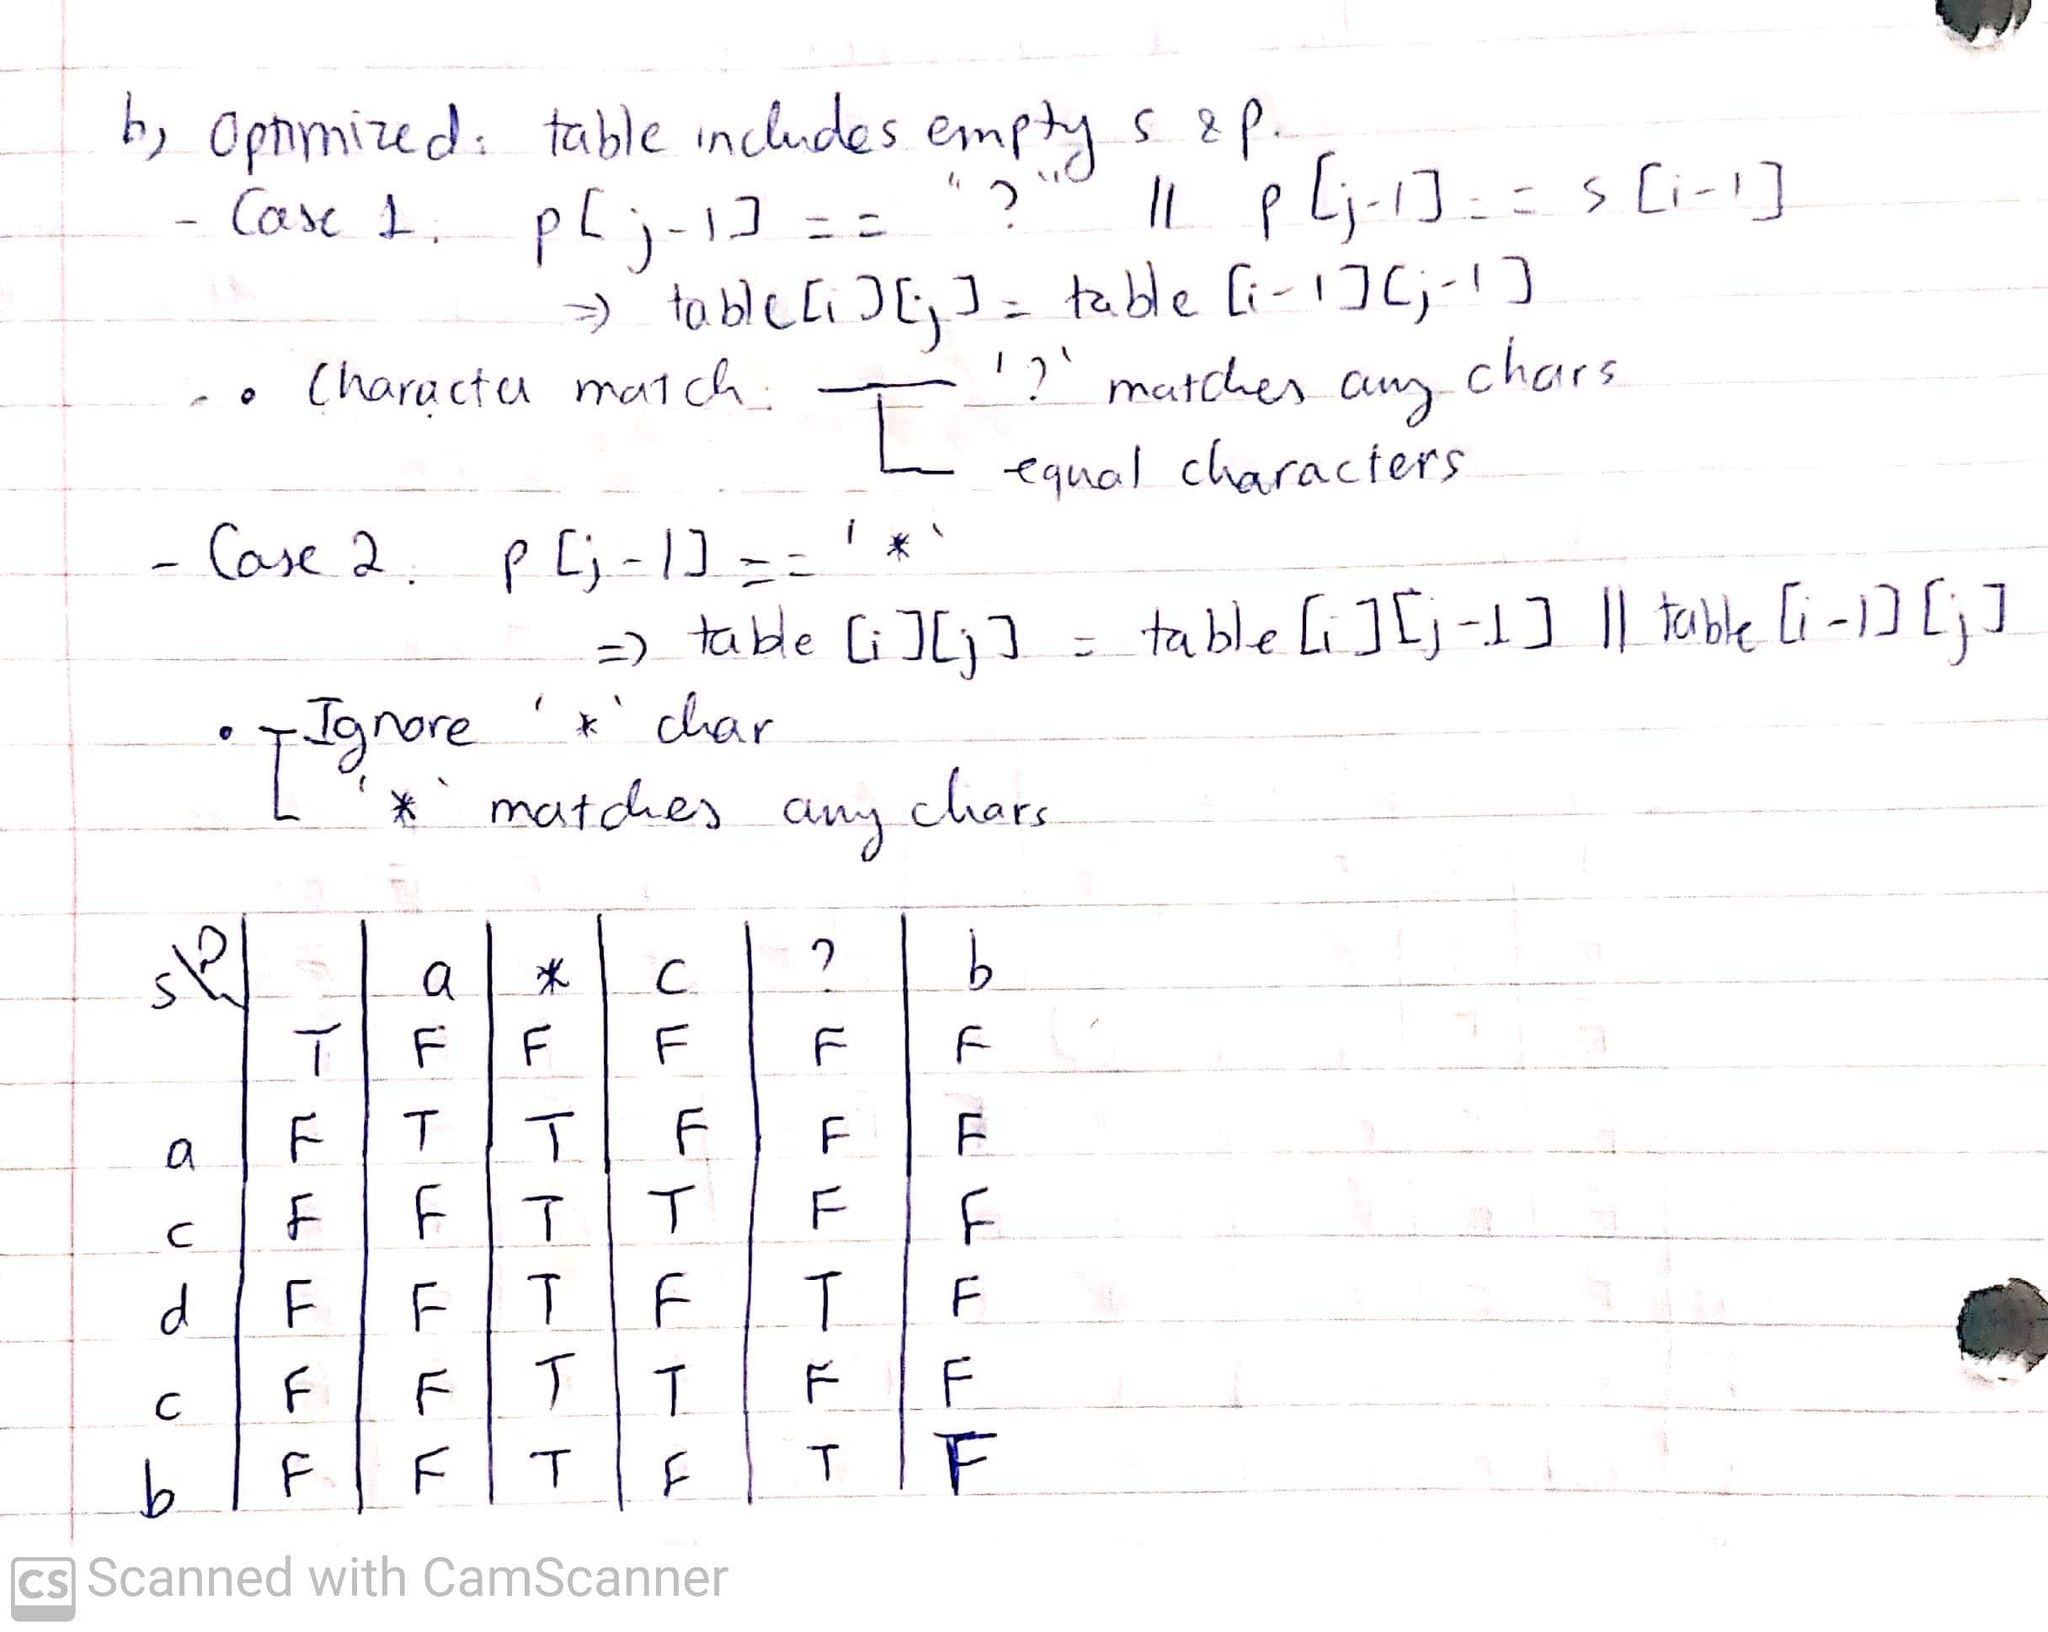 b, Optimized: table includes empty s & p.
- Case 1. p[j-1] == "?" || p[j-1] == s[i-1]
=> table[i][j] = table[i-1][j-1]
• Character match: '?' matches any chars
equal characters
- Case 2. p[j-1] == '*'
=> table[i][j] = table[i][j-1] || table[i-1][j]
• Ignore '*' char
'*' matches any chars
s\p a * c ? b
T F F F F F
a F T T F F F
c F F T T F F
d F F T F T F
c F F T T F F
b F F T F T F
CS Scanned with CamScanner